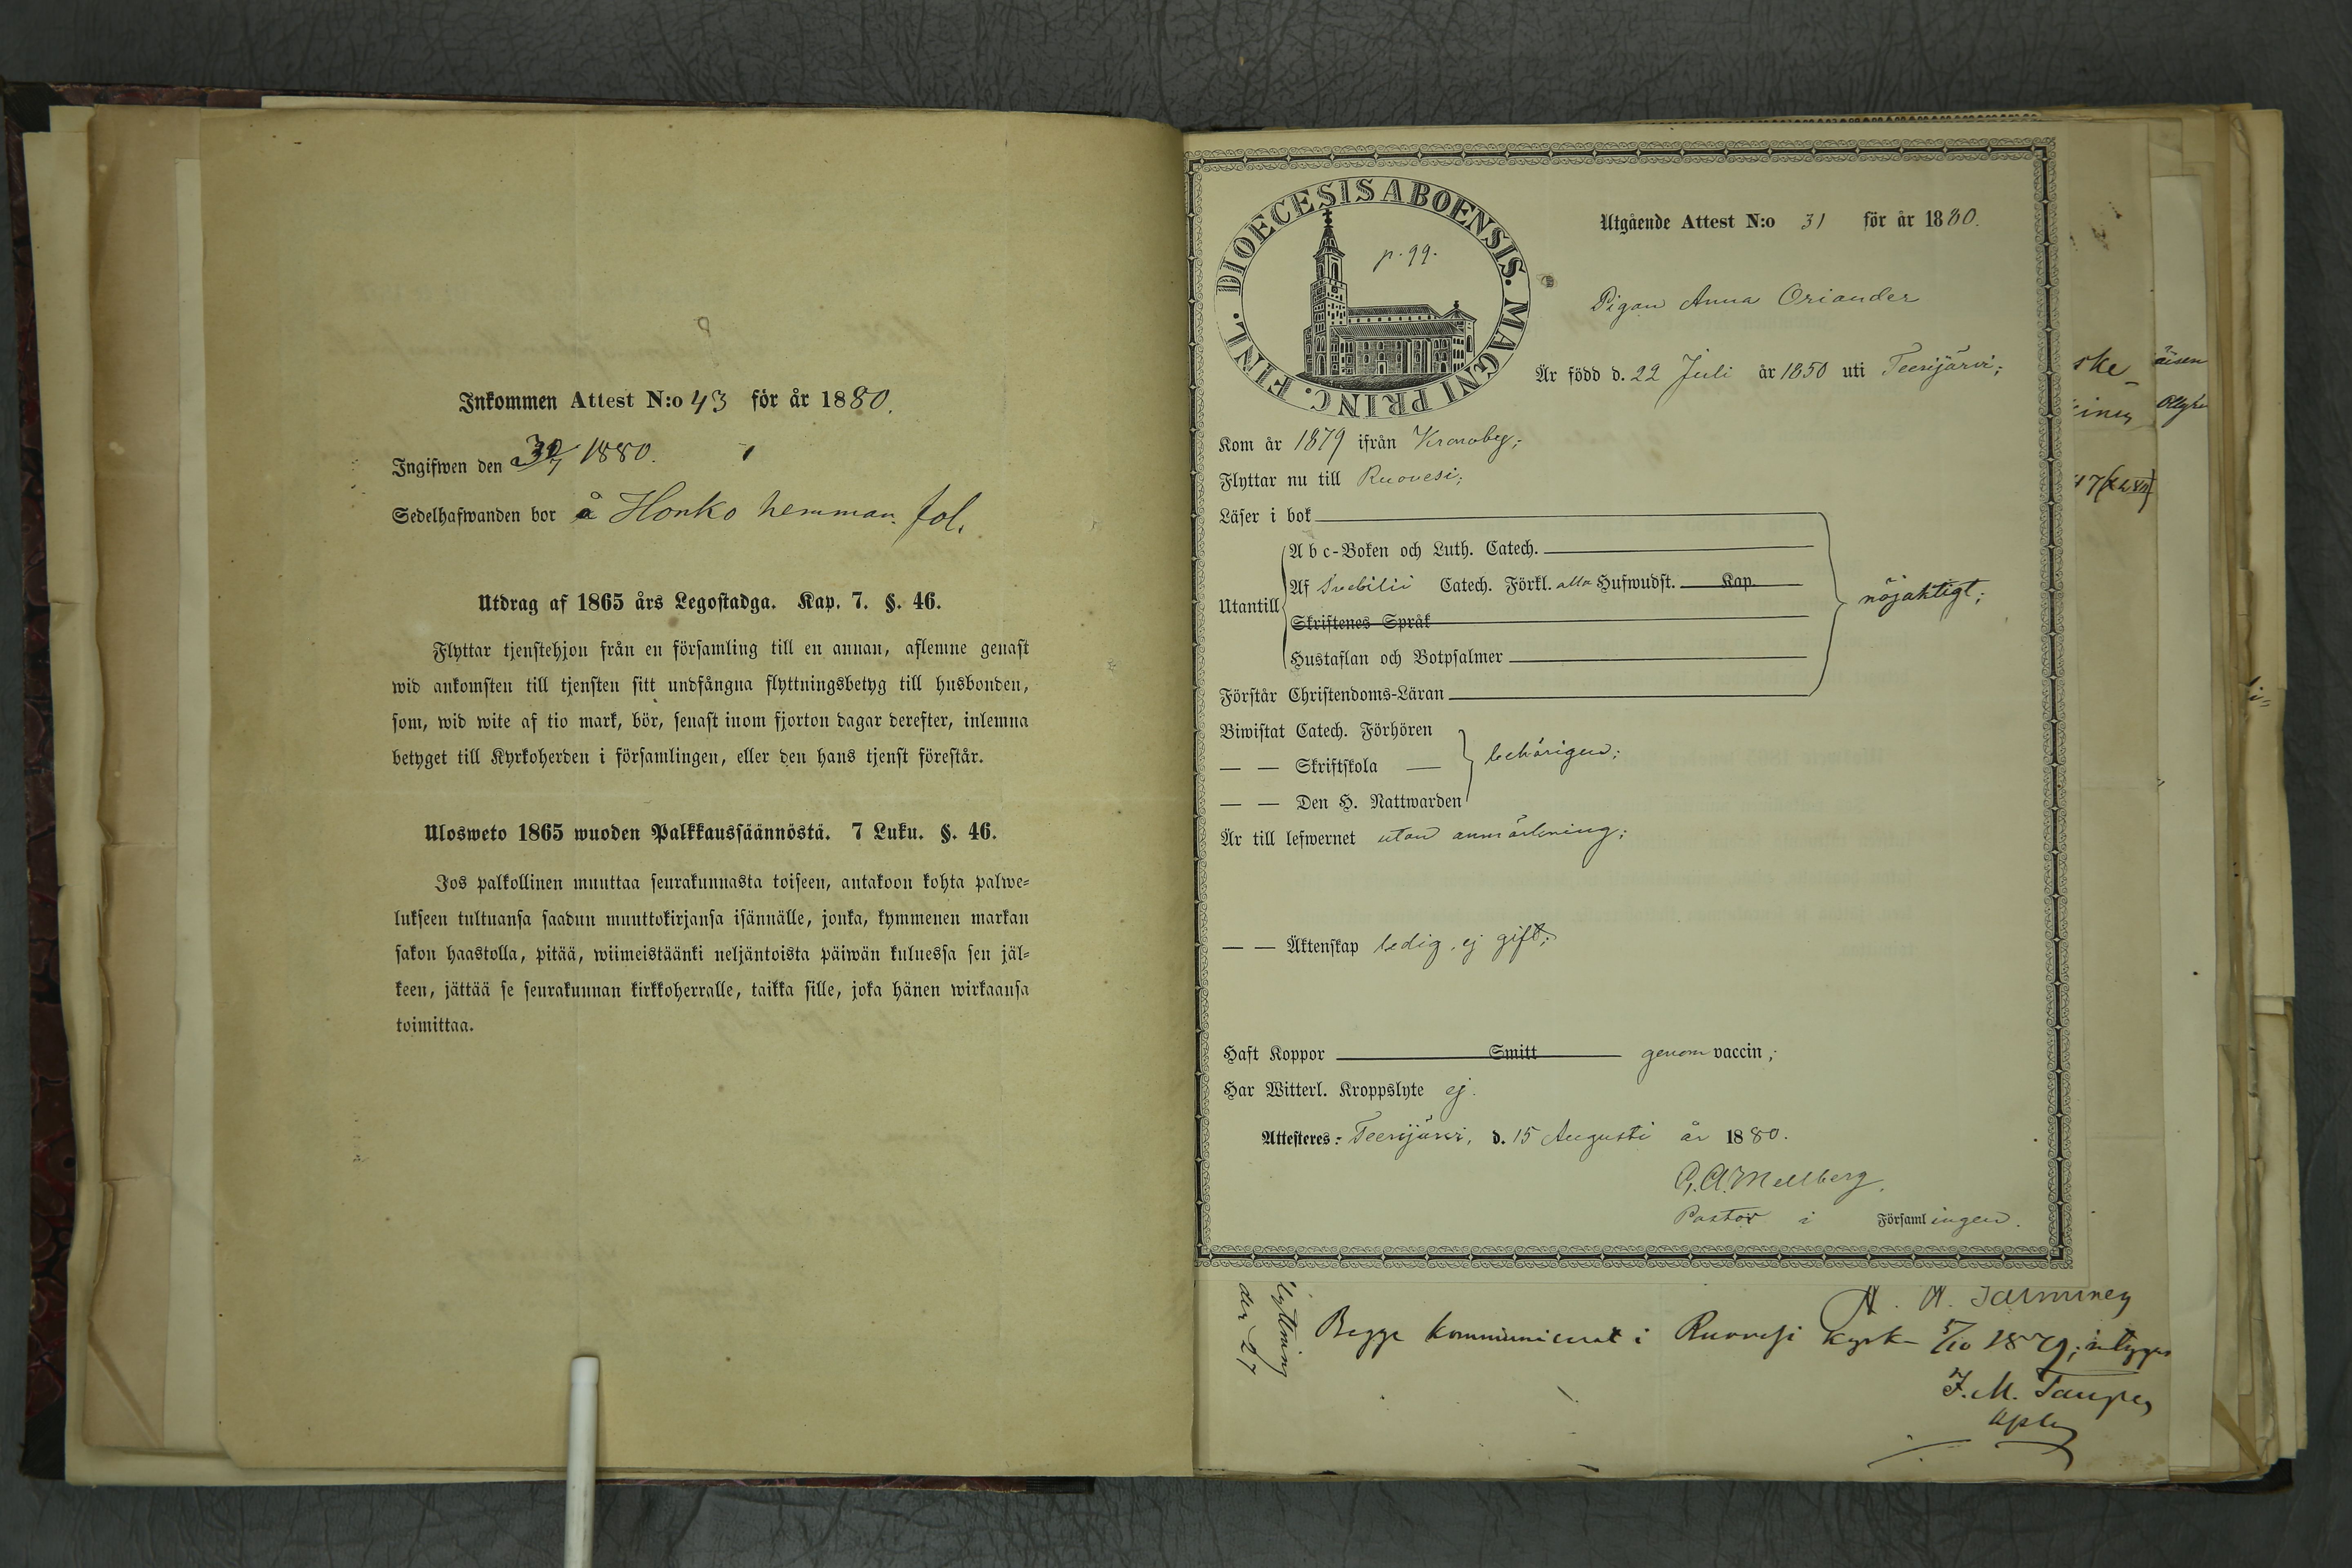 Inkommen Attest N:o 43 för år 1880.
Ingifwen den 30/7 1880.
Sedelhafwanden bor å Honko hemman. fol.
Utdrag af 1865 års Legostadga. Kap. 7. §. 46.
Flyttar tjenstehjon från en församling till en annan, aflemne genast
wid ankomsten till tjensten sitt undfångna flyttningsbetyg till husbonden,
som, wid wite af tio mark, bör, senast inom fjorton dagar derefter, inlemna
betyget till Kyrkoherden i församlingen, eller den hans tjenst förestår.
Ulosweto 1865 wuoden Palkkaussäännöstä. 7 Luku. §. 46.
Jos palkollinen muuttaa seurakunnasta toiseen, antakoon kohta palwe-
lukseen tultuansa saadun muuttokirjansa isännälle, jonka, kymmenen markan
sakon haastolla, pitää, wiimeistäänki neljäntoista päiwän kuluessa sen jäl-
keen, jättää se seurakunnan kirkkoherralle, taikka sille, joka hänen wirkaansa
toimittaa.
DIOECESIS ABOENSIS. MAGNI PRINC. FINL.
p. 99.
Utgående Attest N:o 31 för år 1880.
Pigan Anna Oriander
Är född d. 22 Juli år 1850 uti Teerijärvi;
Kom år 1879 ifrån Kronoby;
Flyttar nu till Ruovesi;
Läser i bok
Utantill
A b c-Boken och Luth. Catech.
Af Svebilii Catech. Förkl. alla Hufwudst. Kap.
Skriftenes Språk
Hustaflan och Botpsalmer
nöjaktigt;
Förstår Christendoms-Läran
Biwistat Catech. Förhören
— — Skriftskola —
behörigen;
— — Den H. Nattwarden
Är till lefwernet utan anmärkning;
— — Äktenskap ledig, ej gift;
Haft Koppor Smitt genom vaccin;
Har Witterl. Kroppslyte ej.
Attesteres: Teerijärvi, d. 15 Augusti år 1880.
Mellberg,
Pastor i Församlingen.
Begge kommunicerat i Ruovesi kyrk- 5/10 1879; intygar